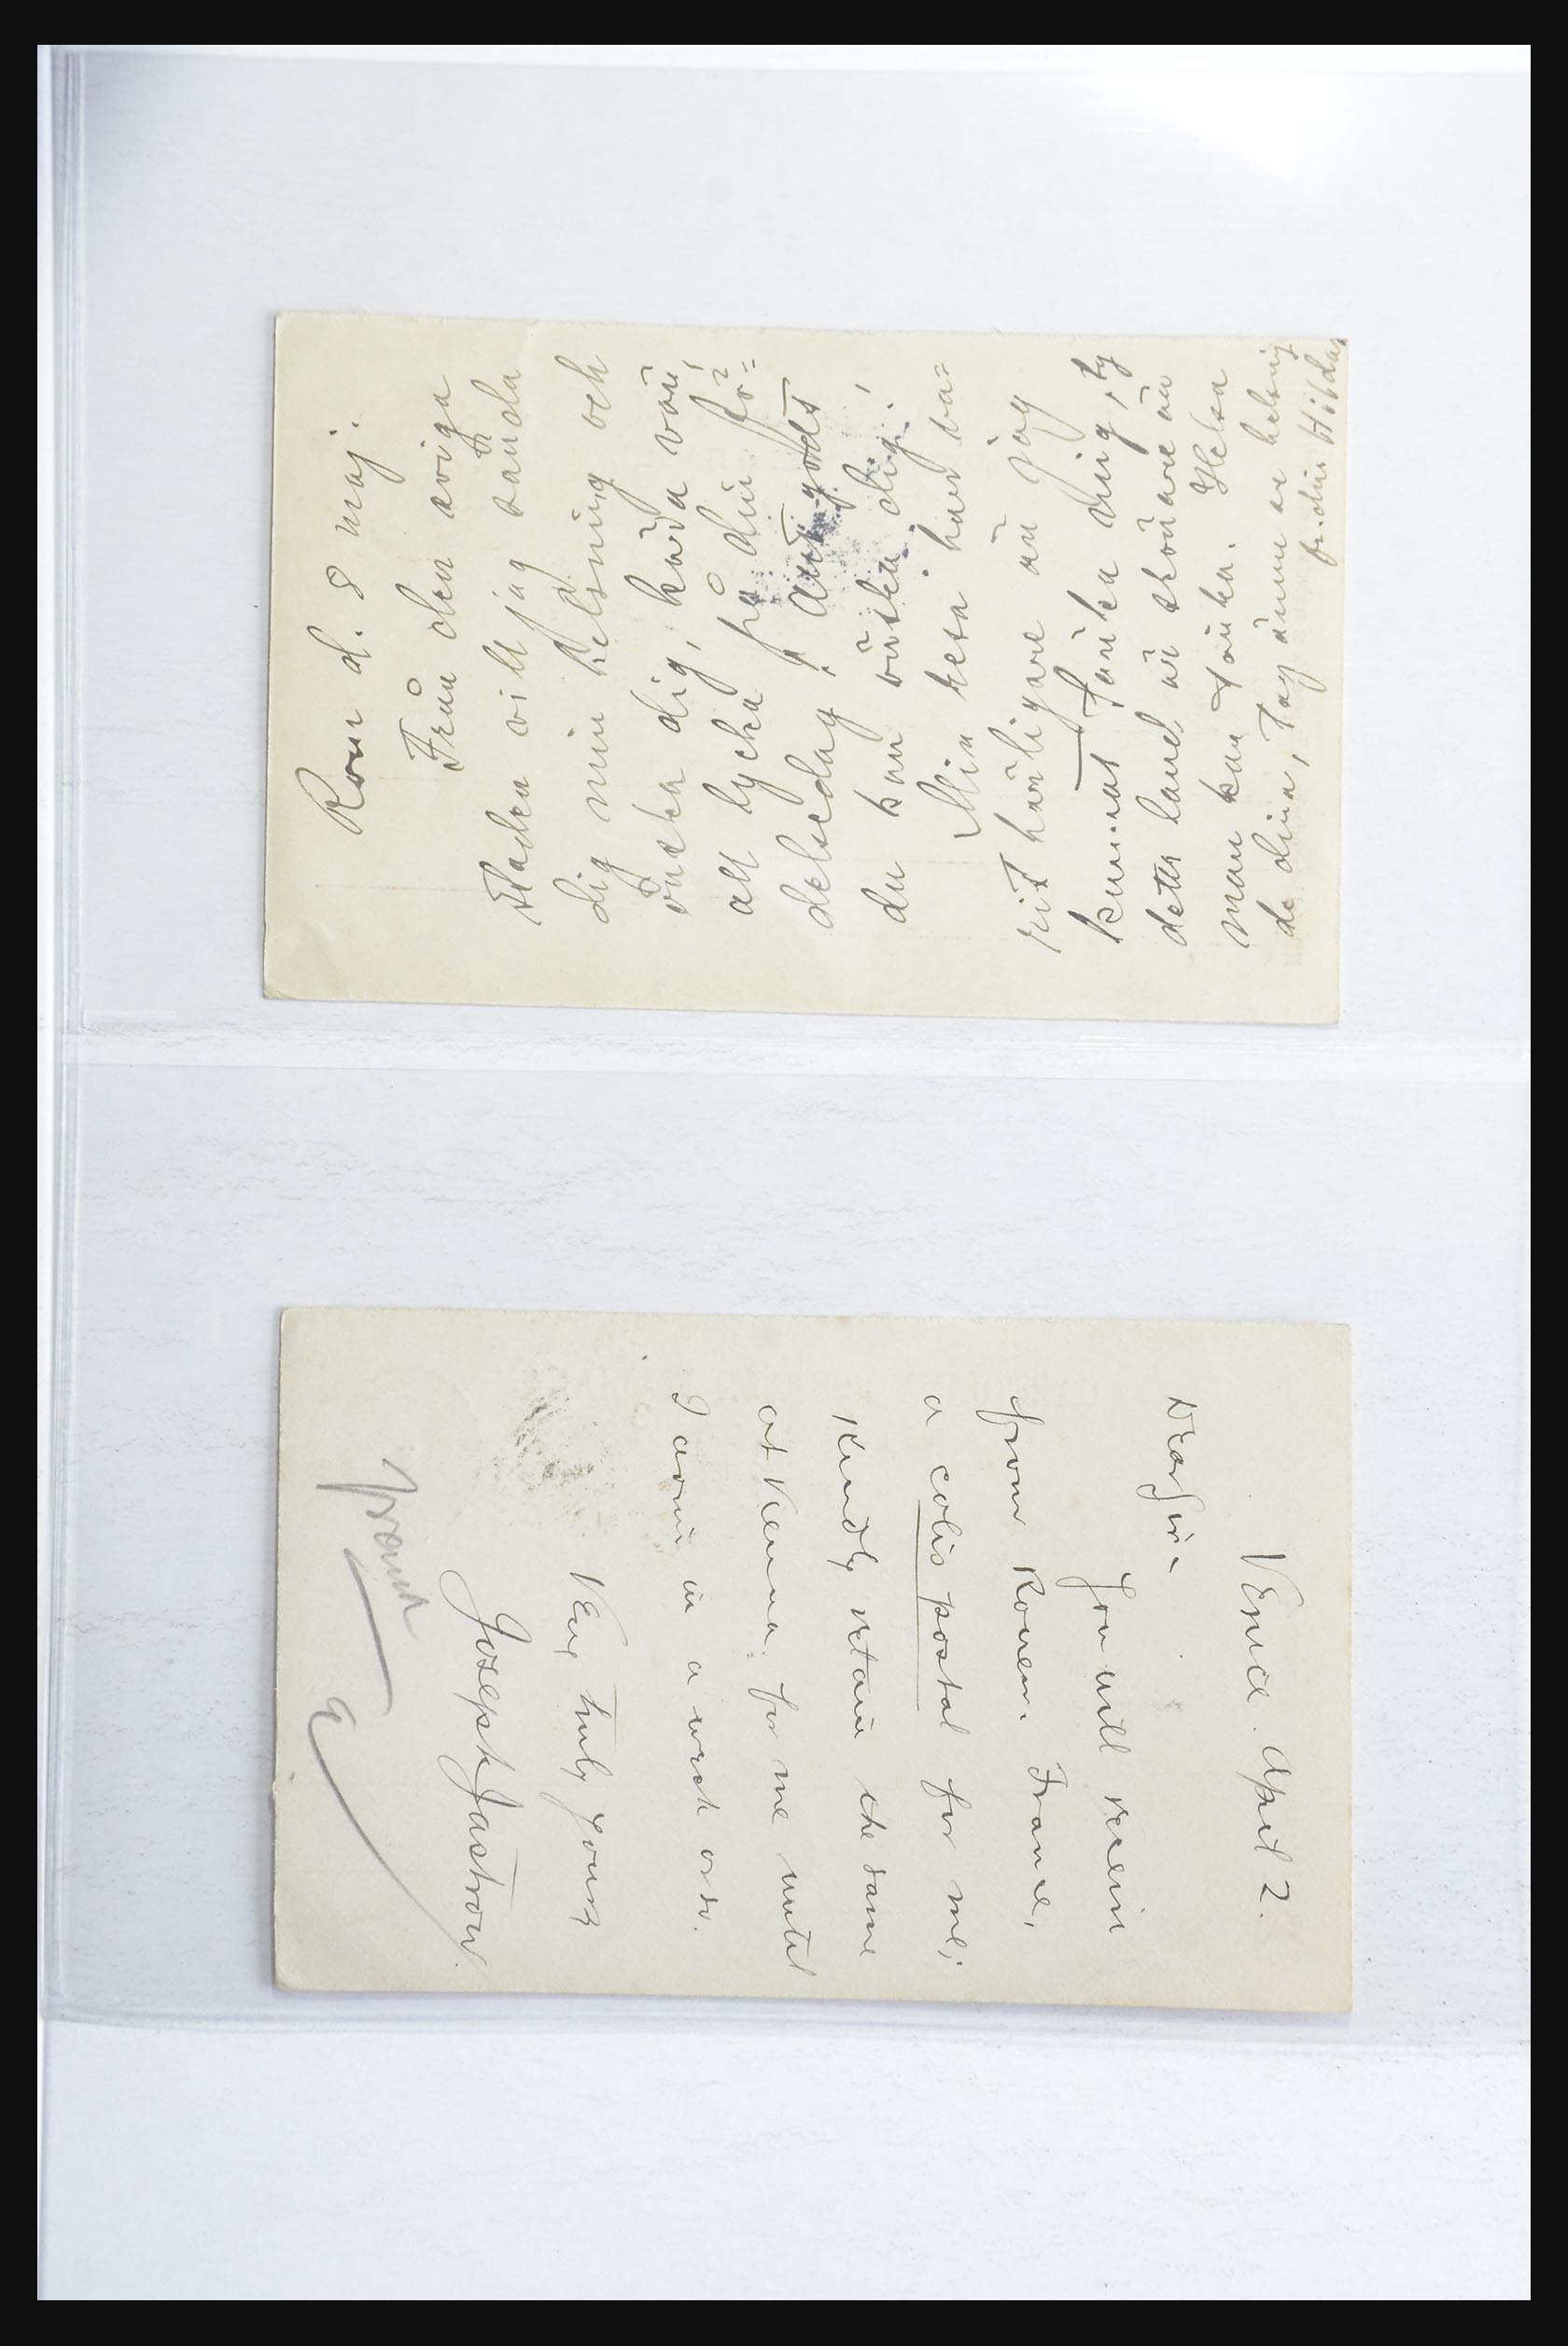 Rom d. 8 maj.
Från den eviga
staden vill jag sända
dig min helsning och
önska dig, kära vän,
all lycka på din fö=
delsedag, allt godt
du kan önska dig!
Min resa har va=
rit härligare än jag
kunnat tänka mig, ty
detta land är skönare än
man kan tänka. Helsa
de dina, Tag ännu en helsning
fr. din Hilda
Venice. April 2.
Dear Sir -
You will receive
from Rouen. France,
a colis postal for me;
Kindly retain the same
at Vienna for me until
I arrive in a week or so.
Very truly yours
Joseph Jastrow.